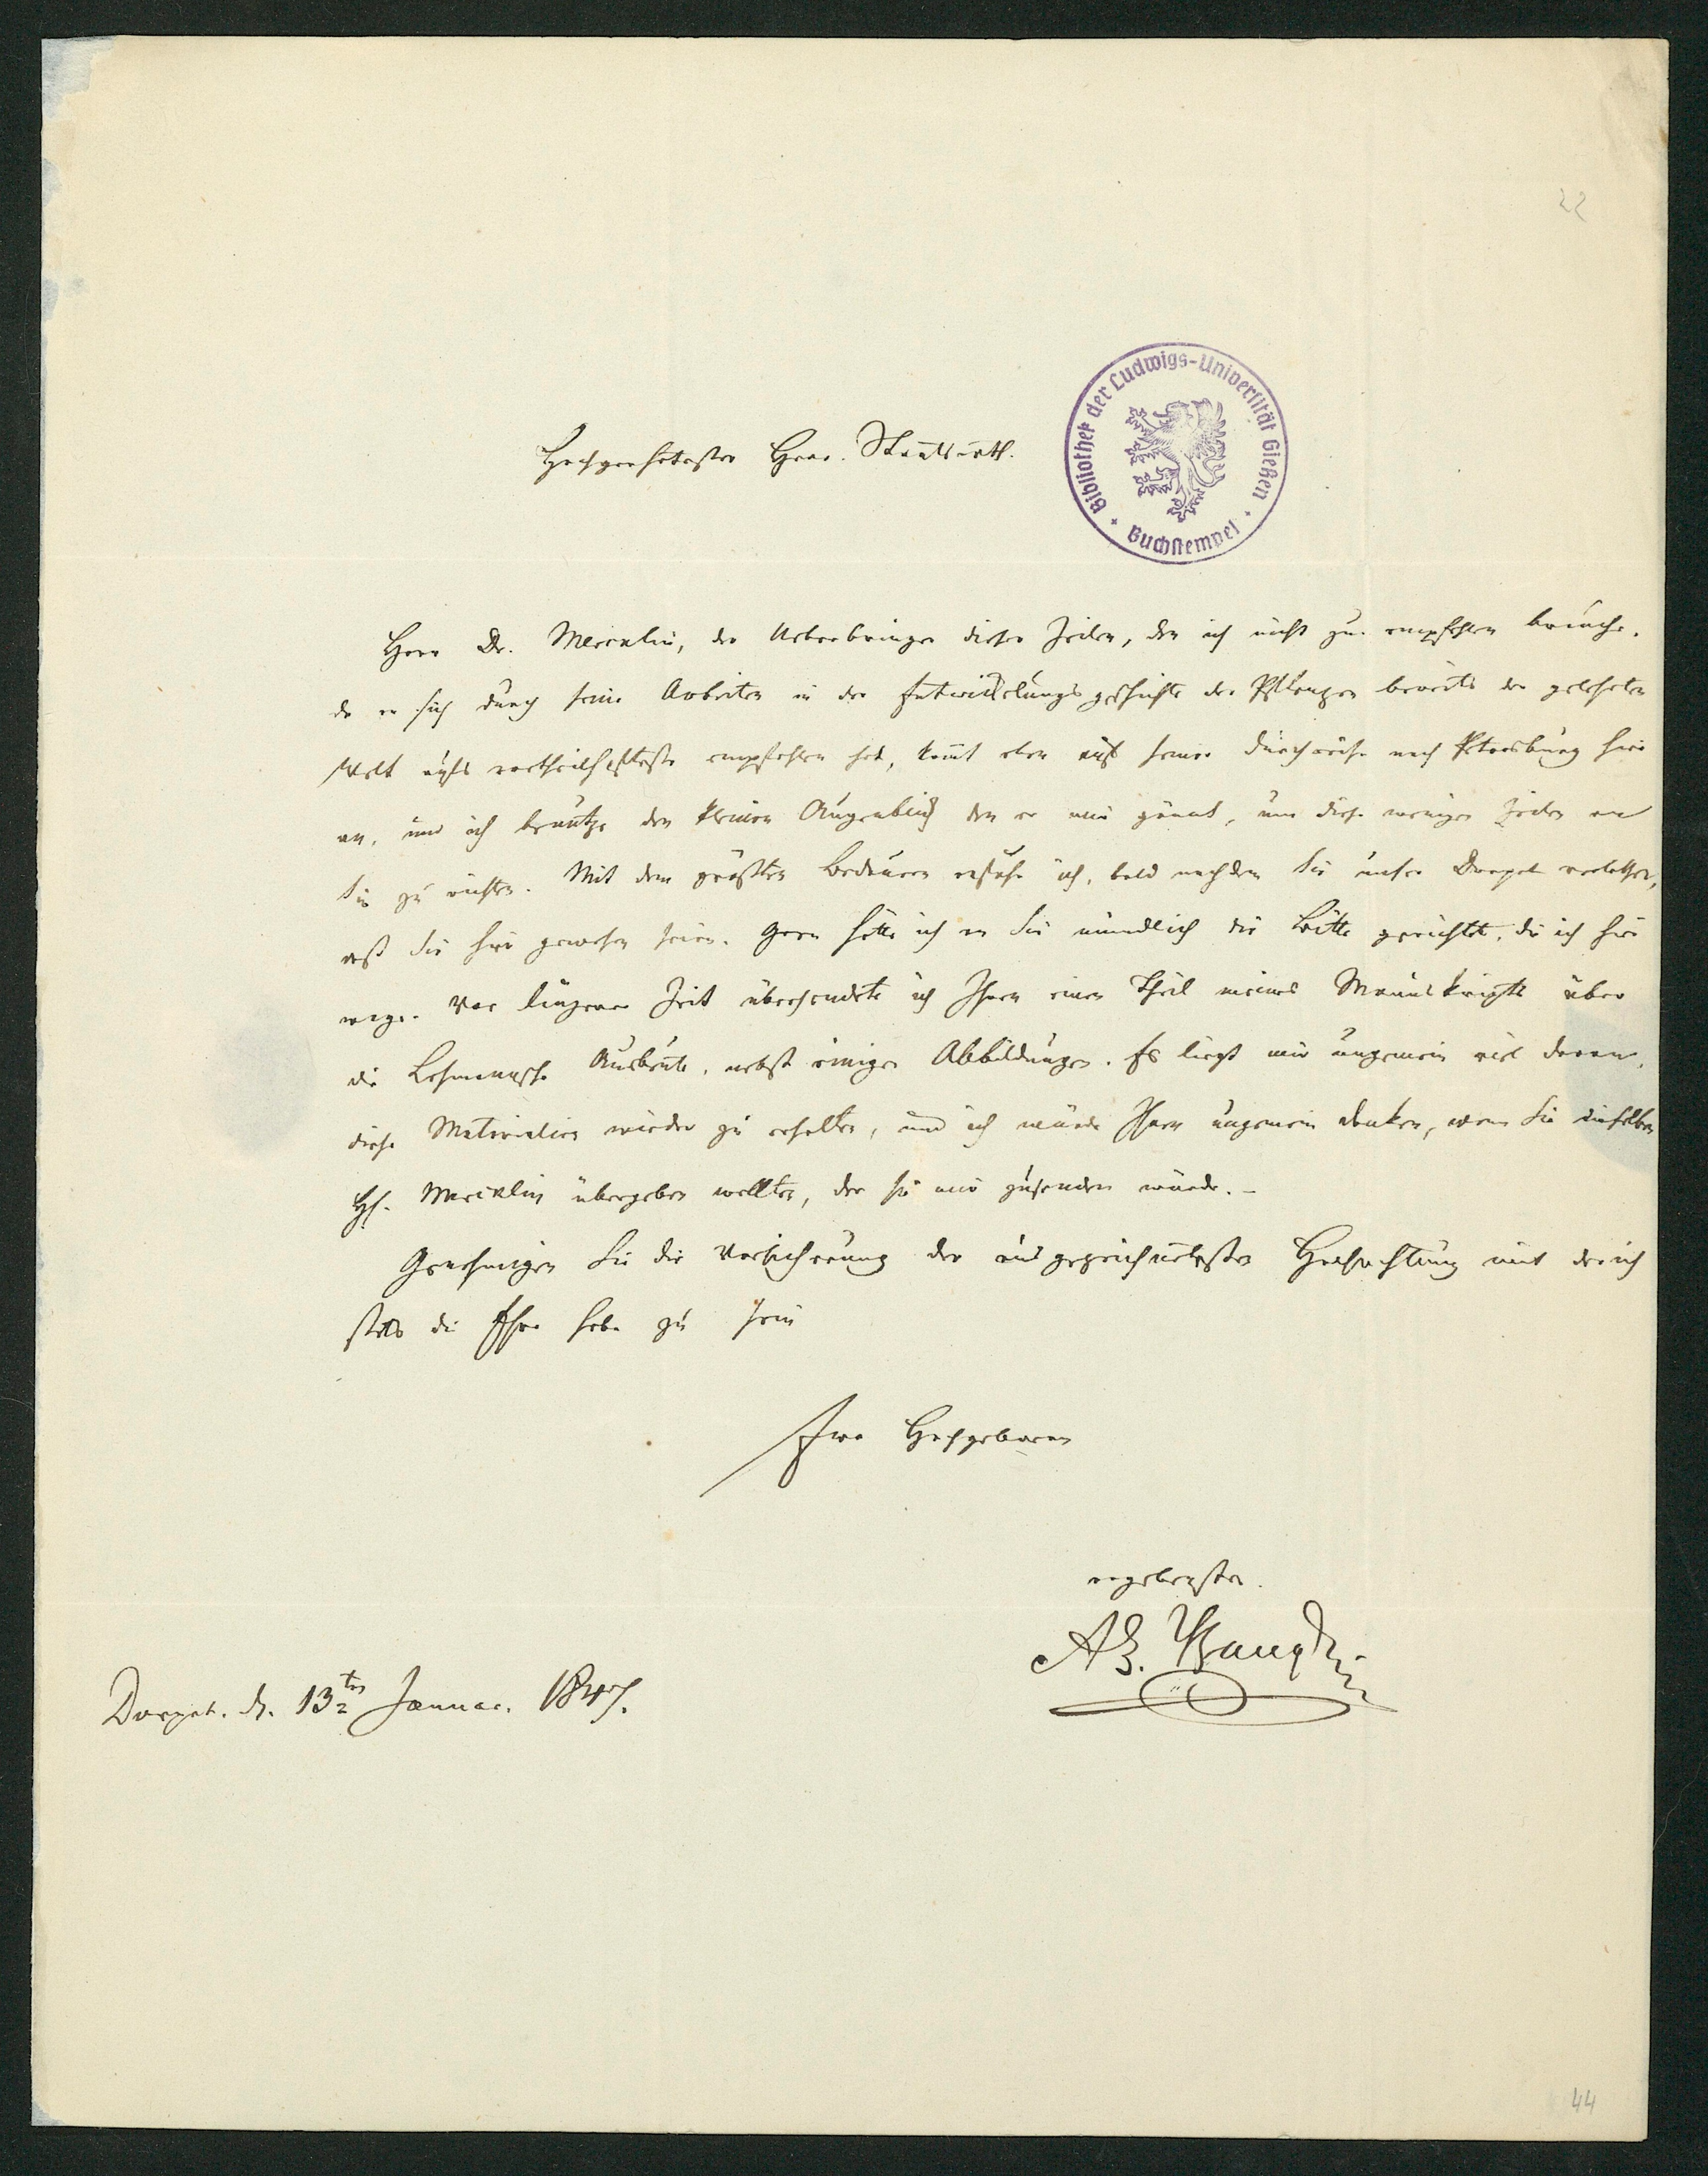 22
Hochgeehrtester Herr Staatsrath.
Bibliothek der Ludwigs-Universität Gießen
Buchstempel
Herr Dr. Mercklin, der Ueberbringer dieser Zeilen, den ich nicht zu empfehlen brauche,
da er sich durch seine Arbeiten in der Entwickelungsgeschichte der Pflanzen bereits der gelehrten
Welt aufs vortheilhafteste empfohlen hat, kommt eben auf seiner Durchreise nach Petersburg hier
an, und ich benutze den kleinen Augenblick den er mir gönnt, um diese wenigen Zeilen an
Sie zu richten. Mit dem größten Bedauern erfuhr ich, bald nachdem Sie unser Dorpat verließen,
daß Sie hier gewesen seien. Gern hätte ich an Sie mündlich die Bitte gerichtet, die ich hier
wage. Vor längerer Zeit übersendete ich Ihnen einen Theil meines Manuskripts über
die Lehmannsche Ausbeute, nebst einigen Abbildungen. Es liegt mir ungemein viel daran,
diese Materialien wieder zu erhalten, und ich würde Ihnen ungemein danken, wenn Sie dieselben
H. Mercklin übergeben wollten, der sie mir zusenden würde. –
Genehmigen Sie die Versicherung der ausgezeichnetesten Hochachtung mit der ich
stets die Ehre habe zu sein
Ew Hochgeboren
ergebenster
Al. Bunge
Dorpat. d. 13ten Januar. 1847.
44